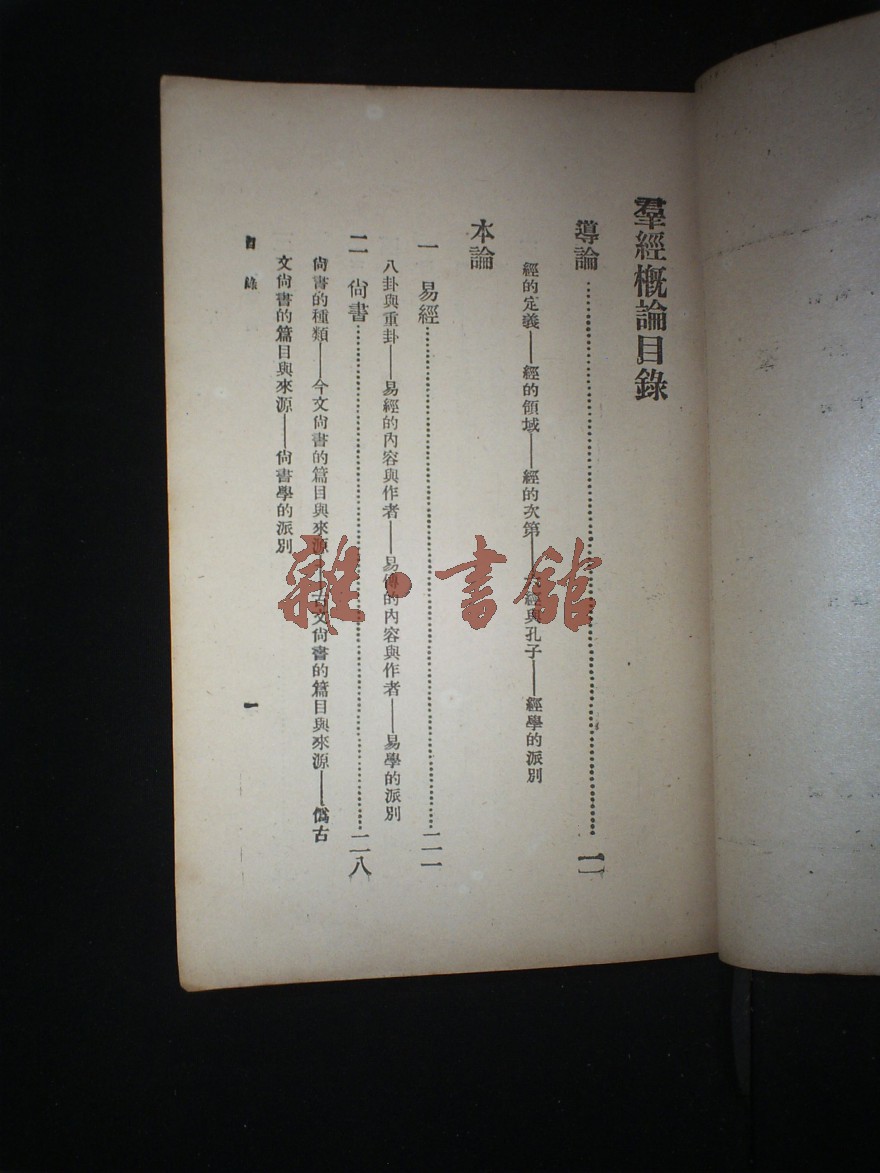 羣經概論目錄
導論……一
經的定義——經的領域——經的次第——六經與孔子——經學的派別
本論
一 易經……二一
八卦與重卦——易經的內容與作者——易傳的內容與作者——易學的派別
二 尙書……二八
尙書的種類——今文尙書的篇目與來源——古文尙書的篇目與來源——僞古
文尙書的篇目與來源——尙書學的派別
目錄
一
雜·書館